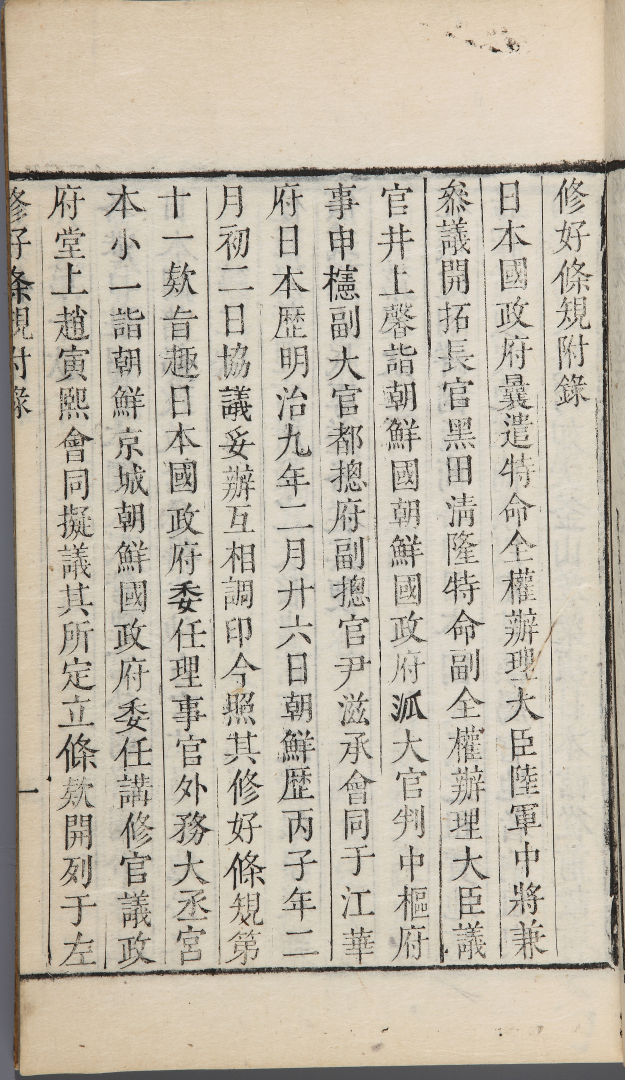 修好條規附錄
日本國政府曩遣特命全權辦理大臣陸軍中將兼
叅議開拓長官黑田淸隆特命副全權辦理大臣議
官井上馨詣朝鮮國朝鮮國政府派大官判中樞府
事申櫶副大官都摠府副摠官尹滋承會同于江華
府日本歷明治九年二月廿六日朝鮮歷丙子年二
月初二日協議妥辦互相調印今照其修好條規第
十一欸旨趣日本國政府委任理事官外務大丞宮
本小一詣朝鮮京城朝鮮國政府委任講修官議政
府堂上趙寅熙會同擬議其所定立條欸開列于左
修好條規附錄
一